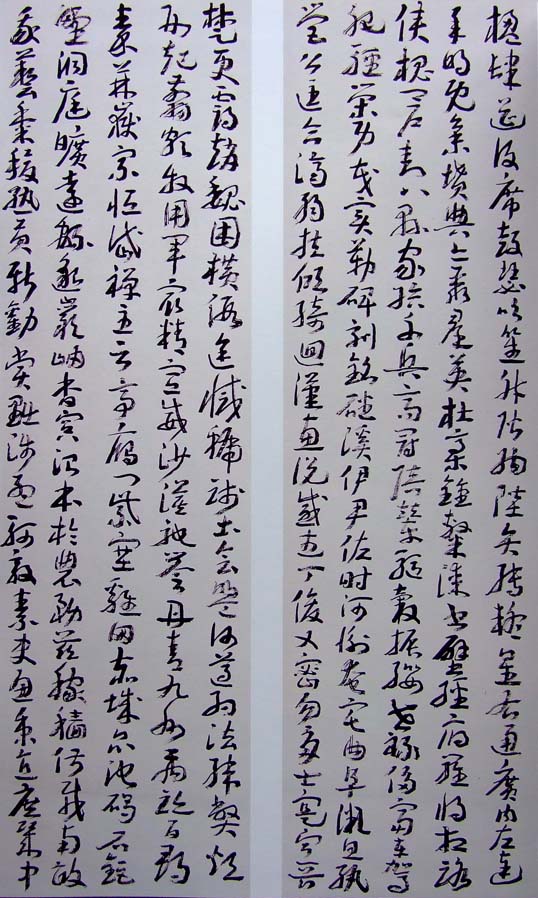 楹肆筵設席鼓瑟吹笙升階納陛弁轉疑星右通廣內左達
承明既集墳典亦聚群英杜稾鍾隸漆書壁經府羅將相路
俠槐卿戶封八縣家給千兵高冠陪輦驅轂振纓世祿侈富車駕
肥輕策功茂實勒碑刻銘磻溪伊尹佐時阿衡奄宅曲阜微旦孰
營公匡合濟弱扶傾綺迴漢惠說感武丁俊乂密勿多士寔寧晉
楚更霸趙魏困橫假途滅虢踐土會盟何遵約法韓弊煩
刑起翦頗牧用軍最精宣威沙漠馳譽丹青九州禹跡百郡
秦并嶽宗恒岱禪主云亭雁門紫塞雞田赤城昆池碣石鉅
野洞庭曠遠綿邈巖岫杳冥治本於農務茲稼穡俶載南畝
我藝黍稷稅熟貢新勸賞黜陟孟軻敦素史魚秉直庶幾中